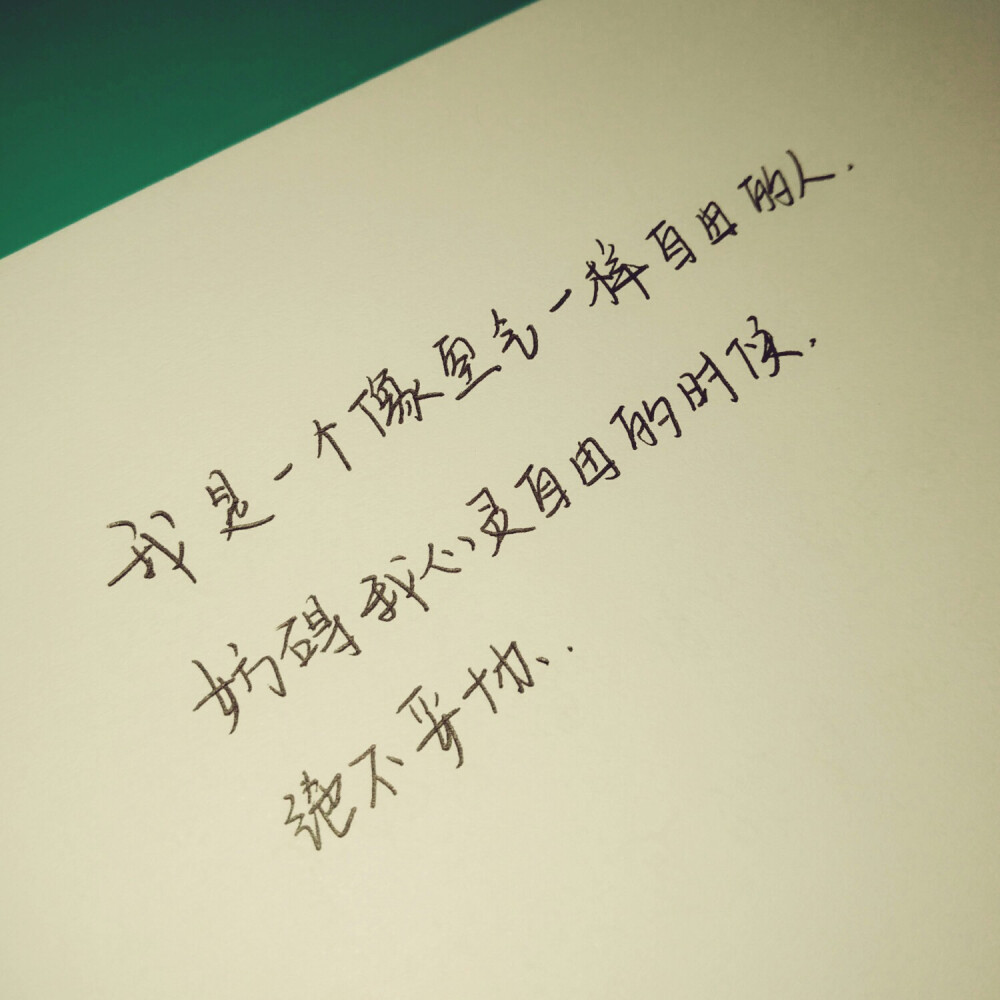 我是一个像空气一样自由的人.
妨碍我心灵自由的时候.
绝不妥协.